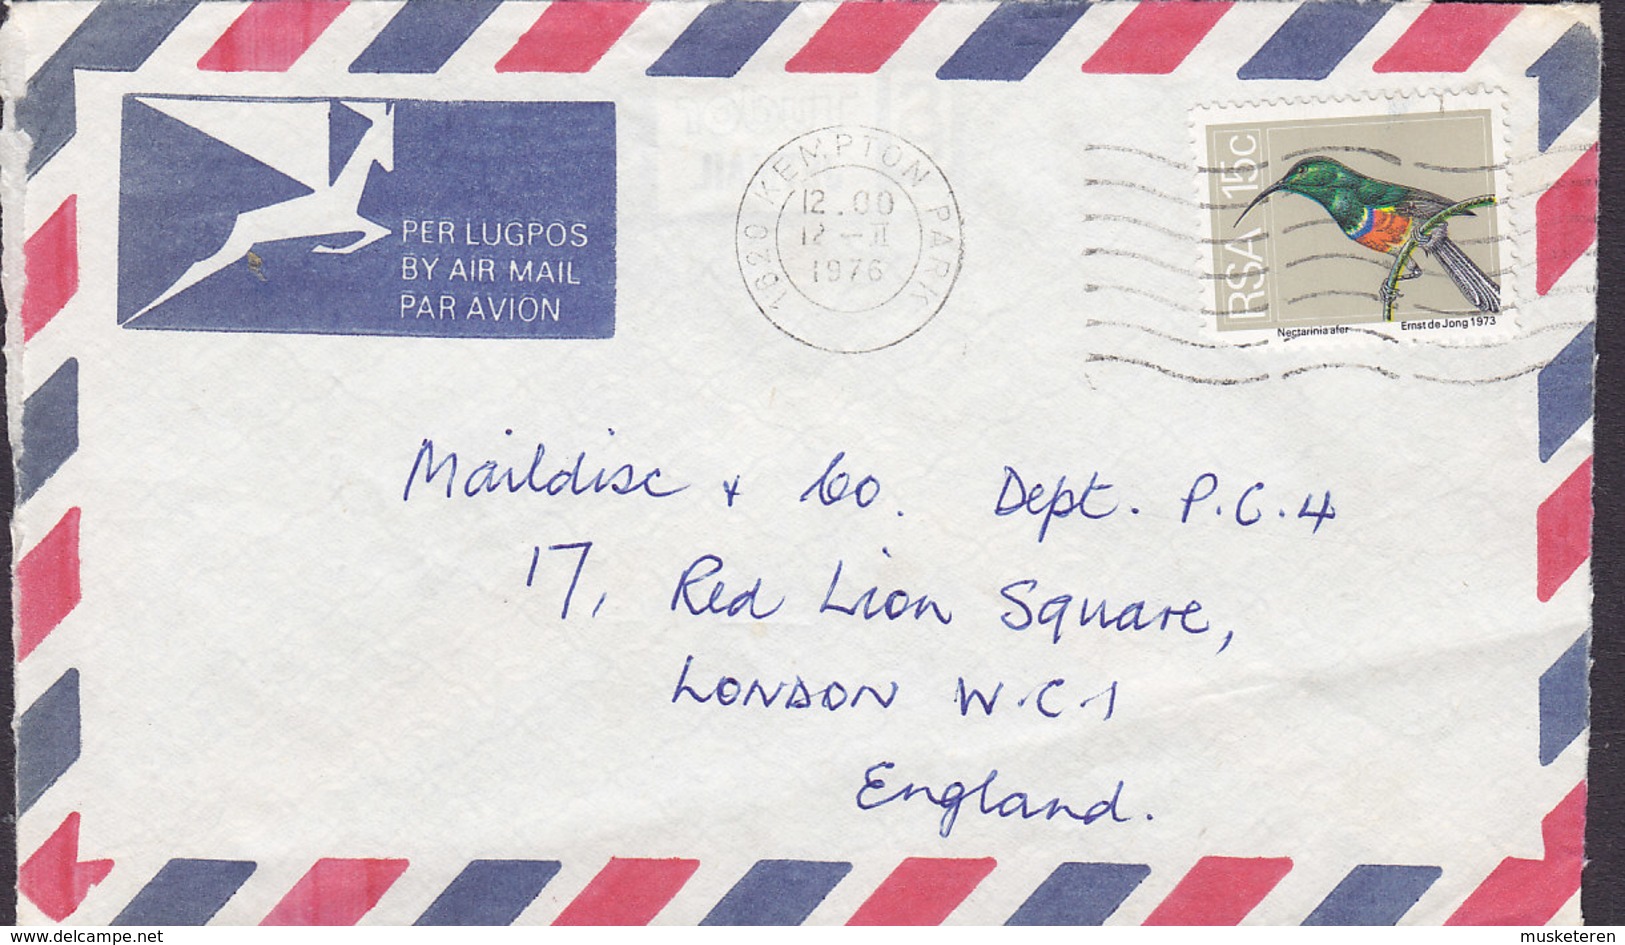 PER LUGPOS
BY AIR MAIL
PAR AVION
1620 KEMPTON PARK
12.00
12 - II
1976
15c
RSA
Nectarinia afer
Ernst de Jong 1973
Maildisc & Co. Dept. P.C.4
17, Red Lion Square,
LONDON W.C.1
England.
www.delcampe.net
musketeren